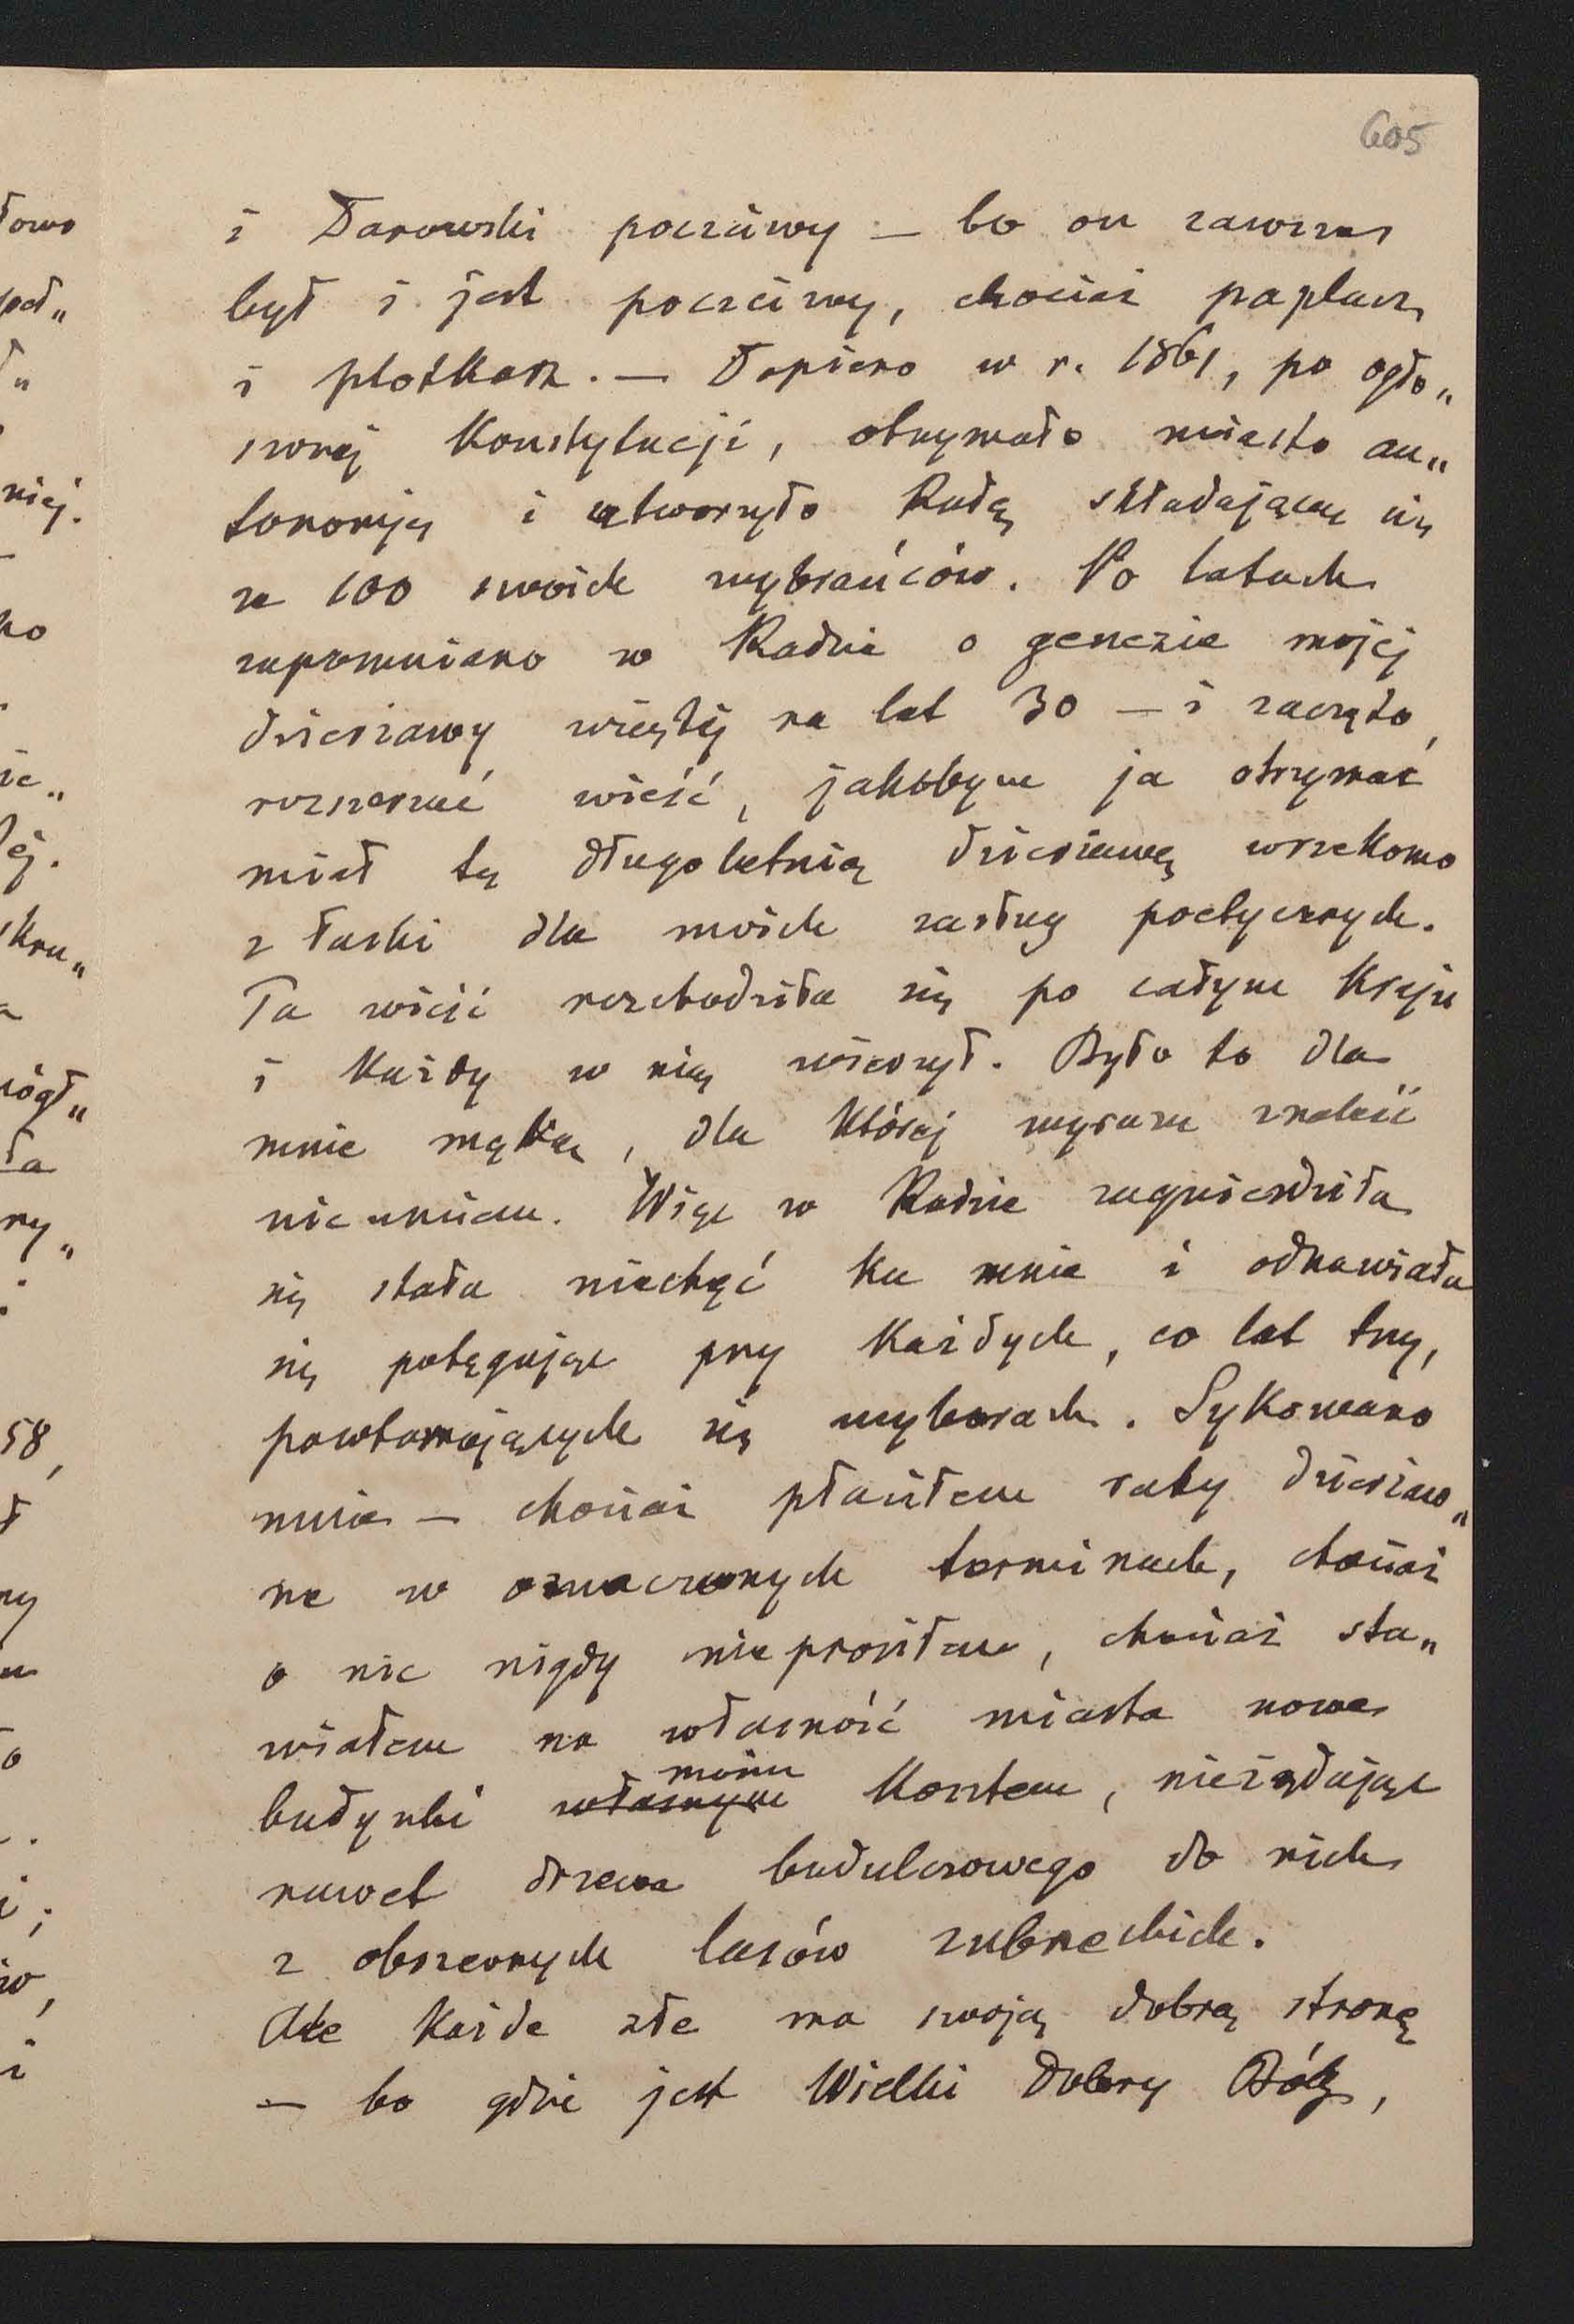 605
i Darowski poczciwy — bo on zawsze
był i jest poczciwy, chociaż paplacz
i plotkarz. — Dopiero w r. 1861, po ogło„
szonéj Konstytucji, otrzymało miasto au„
tonomiję i utworzyło Radę składającą się
ze 100 swoich wybrańców. Po latach
zapomniano w Radzie o genezie mojéj
dzierżawy wziętéj na lat 30 — i zaczęto
rozszerzać wieść, jakobym ja otrzymać
miał tę długoletnią dzierżawę wrzekomo
z łaski dla moich zasług poetycznych.
Ta wieść rozchodziła się po całym kraju
i każdy w nią wierzył. Było to dla
mnie męką, dla któréj wyrazu znaleść
nie umiem. Więc w Radzie zagnieździła
się stała niechęć ku mnie i odnawiała
się potęgując przy każdych, co lat trzy,
powtarzających się wyborach. Sykowano
mnie — chociaż płaciłem raty dzierżaw„
ne w oznaczonych terminach, chociaż
o nic nigdy nie prosiłem, chociaż sta„
wiałem na własność miasta nowe
budynki własnym moim kosztem, nieżądając
nawet drzewa budulcowego do nich
z obszernych lasów zubrzeckich.
Ale każde złe ma swoją dobrą stronę
— bo gdzie jest Wielki Dobry Bóg,
łowo
niéj.
ko
58,